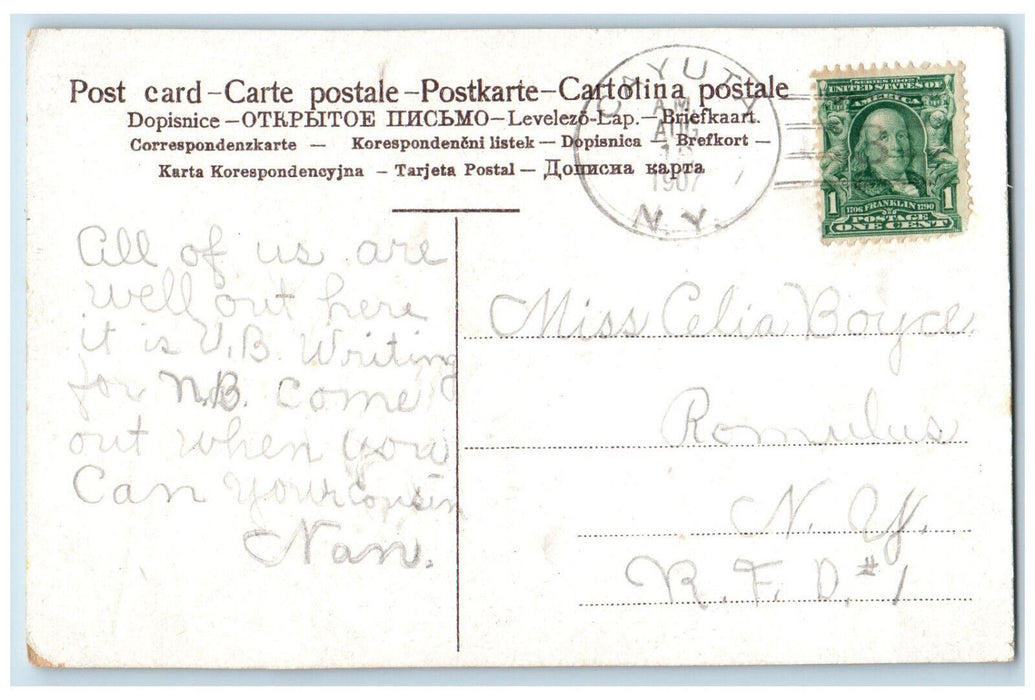 Post card – Carte postale – Postkarte – Cartolina postale
Dopisnice – ОТКРЫТОЕ ПИСЬМО – Levelező-Lap. – Briefkaart.
Correspondenzkarte – Korespondenčni listek – Dopisnica – Brefkort –
Karta Korespondencyjna – Tarjeta Postal – Дописна карта
CAYUTA
A.M.
AUG
1907
N.Y.
SERIES 1902
UNITED STATES OF
AMERICA
1 1
1706 FRANKLIN 1790
POSTAGE
ONE CENT
All of us are
well out here
it is V.B. Writing
for N.B. Come
out when you
Can your cousin
Nan.
Miss Celia Boyce
Romulus
N. Y.
R. F. D. #1